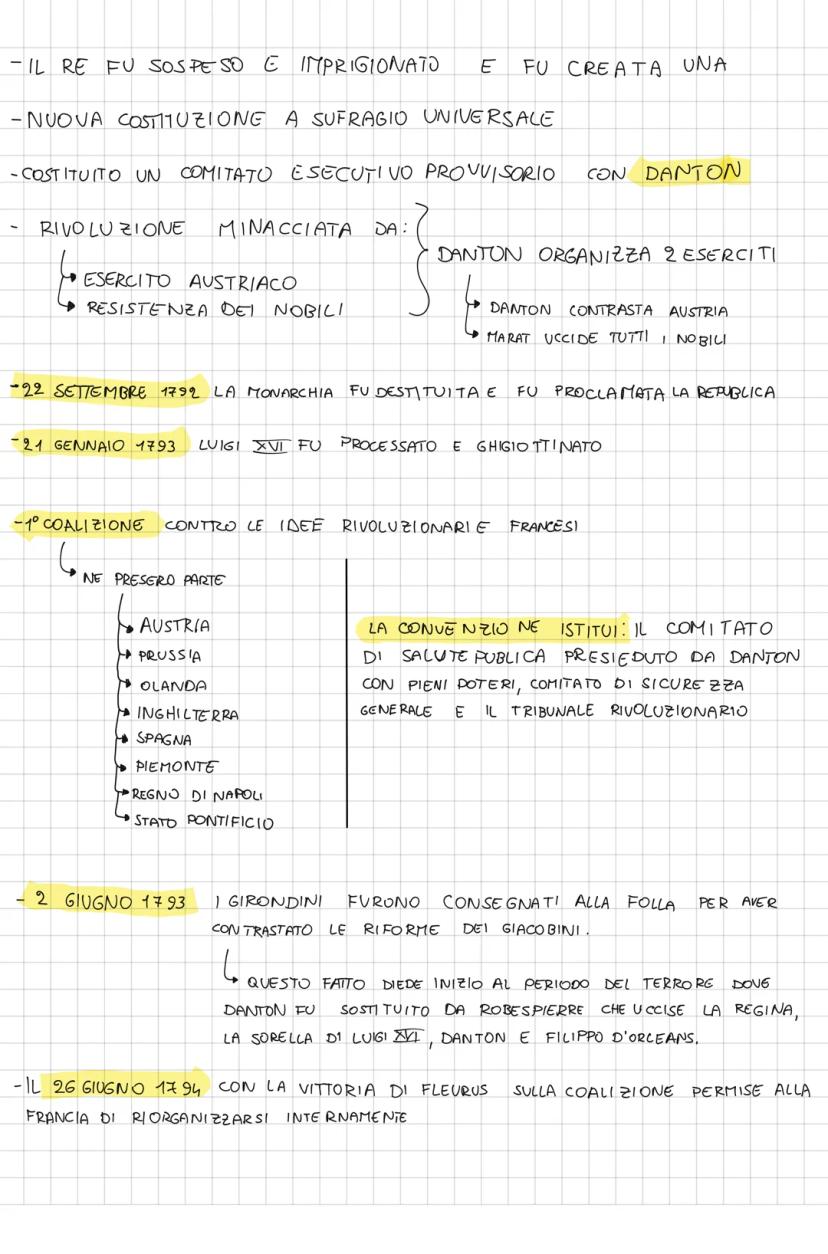 -IL RE FU SOSPESO E IMPRIGIONATO E FU CREATA UNA
-NUOVA COSTITUZIONE A SUFRAGIO UNIVERSALE
-COSTITUITO UN COMITATO ESECUTIVO PROVVISORIO CON DANTON
- RIVOLUZIONE MINACCIATA DA:
ESERCITO AUSTRIACO
RESISTENZA DEI NOBILI
DANTON ORGANIZZA 2 ESERCITI
DANTON CONTRASTA AUSTRIA
MARAT UCCIDE TUTTI I NOBILI
-22 SETTEMBRE 1792 LA MONARCHIA FU DESTITUITA E FU PROCLAMATA LA REPUBLICA
-21 GENNAIO 1793 LUIGI XVI FU PROCESSATO E GHIGIOTTINATO
-1° COALIZIONE CONTRO LE IDEE RIVOLUZIONARIE FRANCESI
NE PRESERO PARTE
AUSTRIA
PRUSSIA
OLANDA
INGHILTERRA
SPAGNA
PIEMONTE
REGNO DI NAPOLI
STATO PONTIFICIO
LA CONVENZIONE ISTITUI: IL COMITATO
DI SALUTE PUBLICA PRESIEDUTO DA DANTON
CON PIENI POTERI, COMITATO DI SICUREZZA
GENERALE E IL TRIBUNALE RIVOLUZIONARIO
- 2 GIUGNO 1793 I GIRONDINI FURONO CONSEGNATI ALLA FOLLA PER AVER
CONTRASTATO LE RIFORME DEI GIACOBINI.
QUESTO FATTO DIEDE INIZIO AL PERIODO DEL TERRORE DOVE
DANTON FU SOSTITUITO DA ROBESPIERRE CHE UCCISE LA REGINA,
LA SORELLA DI LUIGI XVI, DANTON E FILIPPO D'ORLEANS.
-IL 26 GIUGNO 1794 CON LA VITTORIA DI FLEURUS SULLA COALIZIONE PERMISE ALLA
FRANCIA DI RIORGANIZZARSI INTERNAMENTE